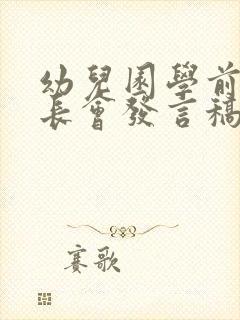 幼兒園學前
長會發言稿
賽歌